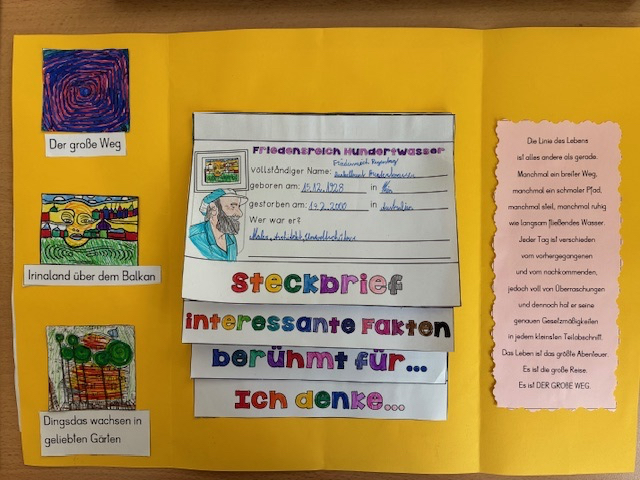 Der große Weg
Irinaland über dem Balkan
Dingsdas wachsen in
geliebten Gärten
Friedensreich Hundertwasser
Friedensreich Regentag
Vollständiger Name: Dunkelbunt Hundertwasser
geboren am: 15.12.1928 in Wien
gestorben am: 19.2.2000 in Australien
Wer war er?
Maler, Architekt, Umweltschützer
Steckbrief
interessante Fakten
berühmt für...
Ich denke...
Die Linie des Lebens
ist alles andere als gerade.
Manchmal ein breiter Weg,
manchmal ein schmaler Pfad,
manchmal steil, manchmal ruhig
wie langsam fließendes Wasser.
Jeder Tag ist verschieden
vom vorhergegangenen
und vom nachkommenden,
jedoch voll von Überraschungen
und dennoch hat er seine
genauen Gesetzmäßigkeiten
in jedem kleinsten Teilabschnitt.
Das Leben ist das größte Abenteuer.
Es ist die große Reise.
Es ist DER GROßE WEG.